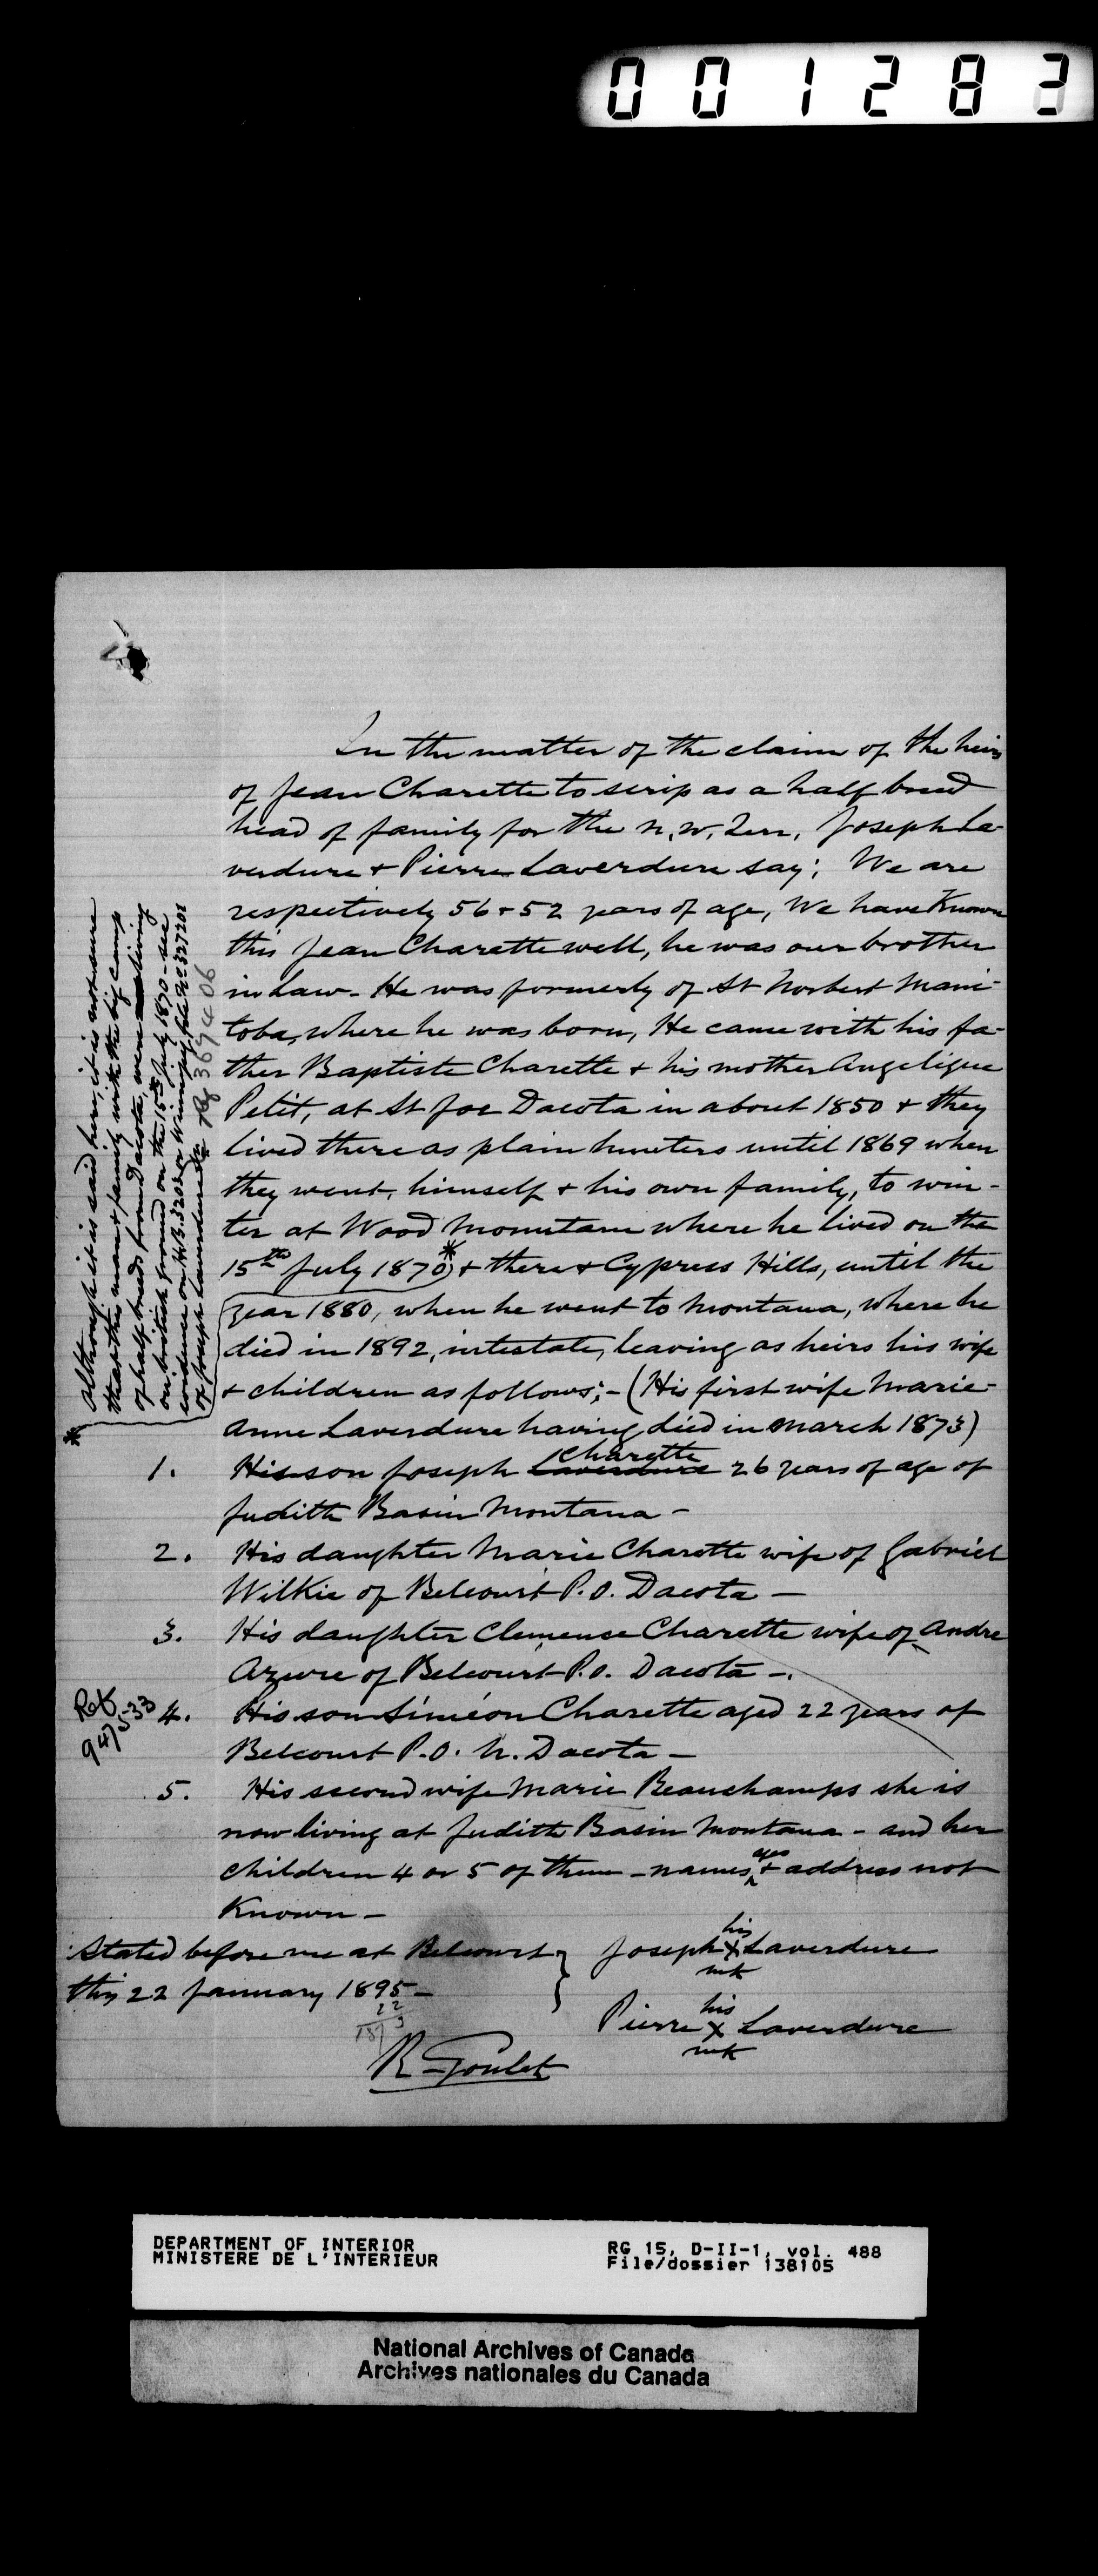 001283
In the matter of the claim of the heirs
of Jean Charette to scrip as a half breed
head of family for the N. W. Terr, Joseph La-
verdure + Pierre Laverdure say: We are
respectively 56 + 52 years of age, We have Known
this Jean Charette well, he was our brother
in law - He was formerly of St Norbert Mani-
toba, where he was born, He came with his fa-
ther Baptiste Charette + his mother Angelique
Petit, at St Joe Dacota in about 1850 + they
lived there as plain hunters until 1869 when
they went, himself + his own family, to win-
ter at Wood Mountain where he lived on the
15th July 1870 * + there + Cypress Hills, until the
year 1880, when he went to Montana, where he
died in 1892, intestate, leaving as heirs his wife
+ children as follows; - (His first wife Marie-
Anne Laverdure having died in March 1873)
1. His son Joseph Laverdure Charette 26 years of age of
Judith Basin Montana -
2. His daughter Marie Charette wife of Gabriel
Wilkie of Belcourt P.O. Dacota -
3. His daughter Clemence Charette wife of Andre
Azure of Belcourt P.O. Dacota -.
4. His son Siméon Charette aged 22 years of
Belcourt P.O. N. Dacota -
5. His second wife Marie Beauchamps she is
now living at Judith Basin Montana - and her
children 4 or 5 of them - names, ages + address not
Known -
Stated before me at Belcourt }
this 22 January 1895 -
22
1873
R Goulet
Joseph his X mk Laverdure
Pierre his X mk Laverdure
* Although it is said here, it is not sure
that the man + family with the big camp
of half breeds from Dacota, were living
on british ground on the 15th July 1870 - see
evidence on HB 3203 or Winnipeg file No 327201
of Joseph Laverdure
Ref 369406
Ref
947533
DEPARTMENT OF INTERIOR
MINISTERE DE L'INTERIEUR
RG 15, D-II-1, vol. 488
File/dossier 138105
National Archives of Canada
Archives nationales du Canada